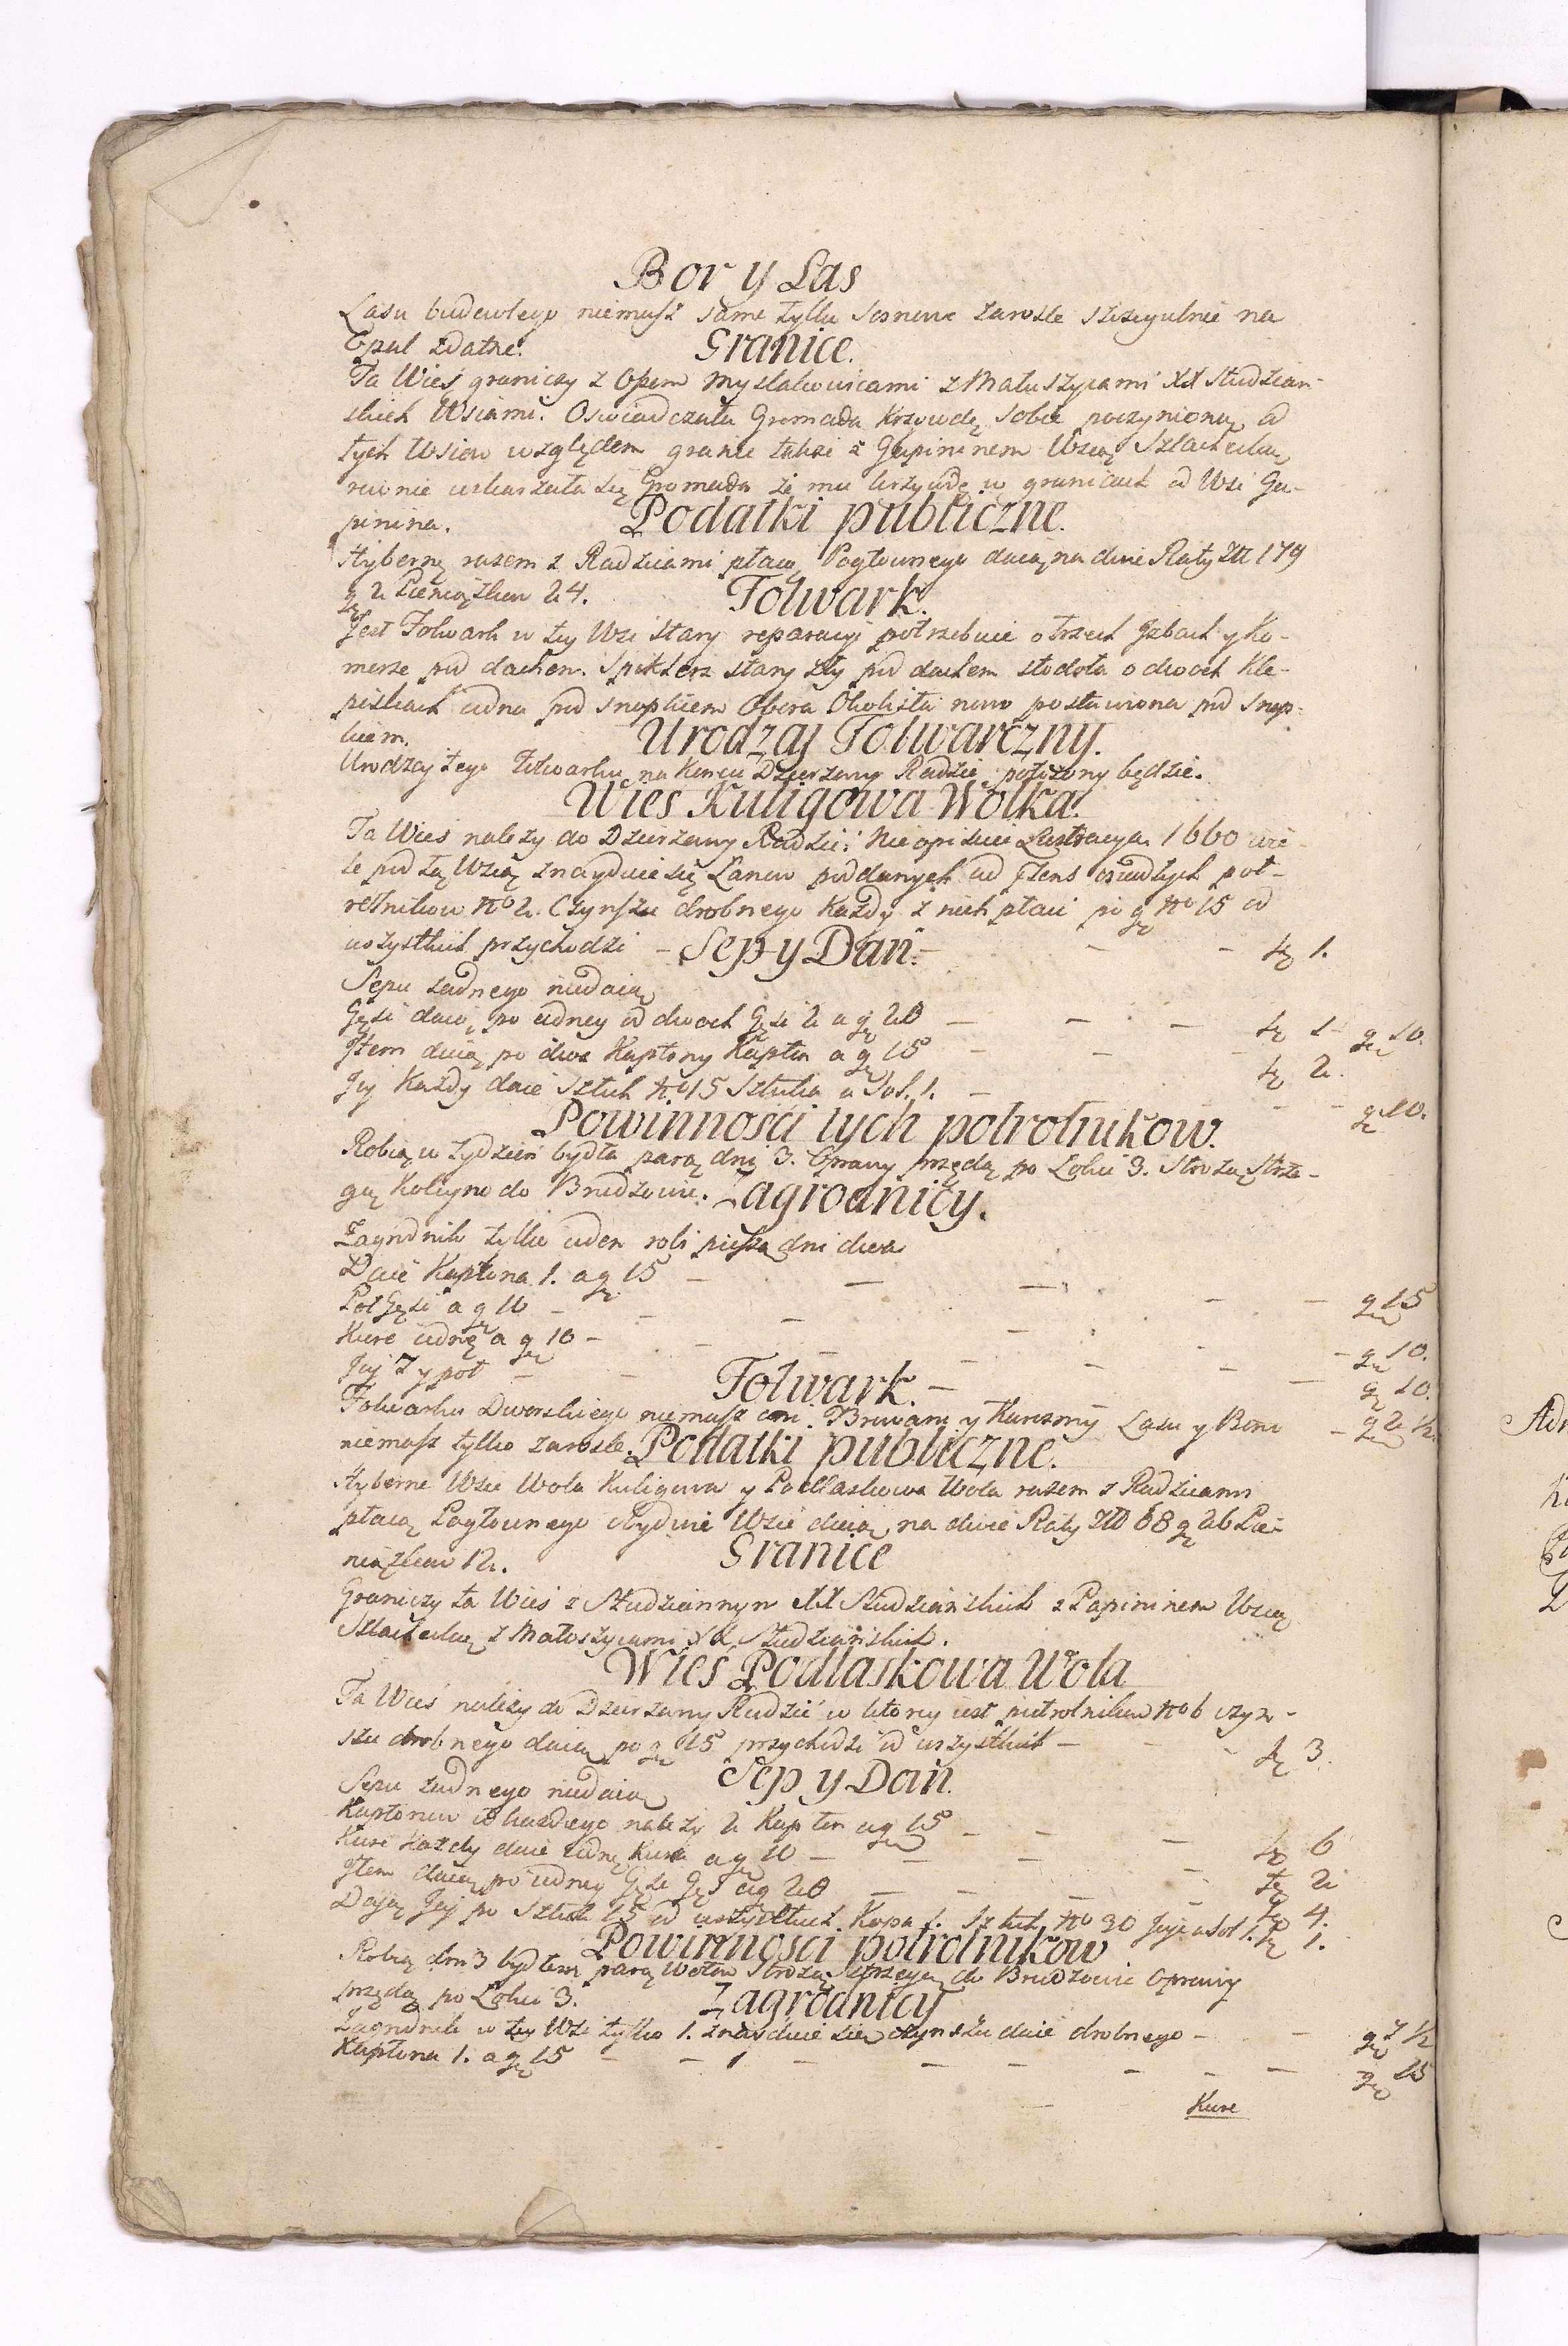 Bor y Las
Lasu budowlego niemasz same tylko sosnowe zarosle szczegulnie na
Opał zdatne.
Granice.
Ta Wieś graniczy z Mysłakowicami z Małuszycami XX Studzian-
skich Wsiami. Oswiadczała Gromada Krzywdę sobie poczynioną od
tych Wsiow względem granic także z Gapininem Wsią Szlachecką,
rownie uskarzała się Gromada że ma krzywdę w granicach od Wsi Ga-
pinina.
Podatki publiczne.
Hybernę razem z Radzicami płacą, Pogłownego daią na dwie Raty Złł 179
gr 2 Pieniążkow 24.
Folwark.
Jest Folwark w tey Wsi stary reparacyi potrzebuie o trzech Izbach y Ko-
morze pod dachem. Spiklerz stary zły pod dachem stodoła o dwoch Kle-
piskach iedna pod snopkiem Obora Okolista nowo postawiona pod snop-
kiem.
Urodzaj Folwarczny.
Urodzaj tego Folwarku na Koncu Dzierzawy Radzic położony będzie.
Wies Kuligowa Wolka.
Ta Wieś nalezy do Dzierzawy Radzic: Nie opisuie Lustracya 1660 wie-
le pod tą Wsią znayduie się Łanow poddanych ad præsens osiadłych poł-
rolnikow No 2. Czynszu drobnego Każdy z nich płaci po gr No 15 od
wszystkich przychodzi - - - zł 1.
Sep y Dań.
Sepu żadnego niedaią
Gęsi daią po iedney od dwoch Gęsi 2 a gr 20 - - - zł 1 gr 10.
Item daią po dwa Kapłony Kapłon a gr 15 - - - zł 2.
Jaj Każdy daie Sztuk No 15 Sztuka a Sol. 1. - - - gr 10.
Powinności tych połrolnikow.
Robią w tydzień bydła parą dni 3. Oprawy przędą po Łokci 3. Strożą Strze-
gą Koleyno do Brudzewic.
Zagrodnicy.
Zagrodnik tylko ieden robi pieszo dni dwa
Daie Kapłona 1. a gr 15 - - - gr 15
Poł Gęsi a gr 10 - - - gr 10.
Kure iednę a gr 10 - - - gr 10.
Jaj 7 y poł - - - gr 2 1/2.
Folwark.
Folwarku Dworskiego niemasz ani Browaru y Karczmy Lasu y Boru
niemasz tylko zarosle.
Podatki publiczne.
Hyberne Wsie Wola Kuligowa y Podlaskowa Wola razem z Radzicami
płacą Pogłownego obydwie Wsie daią na dwie Raty Złł 68 gr 26 Pie-
niążkow 12.
Granice
Graniczy ta Wieś z Studziannym XX Studziańskich z Gapininem Wsią
Szlachecką z Małoszycami XX Studziańskich.
Wieś Podlaskowa Wola
Ta Wieś należy do Dzierzawy Radzic w ktorey iest połrolnikow No 6 czyn-
szu drobnego daią po gr 15 przychodzi od wszystkich - - - zł 3.
Sep y Dań.
Sepu żadnego niedaią
Kapłonow od kazdego nalezy 2 Kapłon a gr 15 - - - zł 6
Kure Kazdy daie iednę Kura a gr 10 - - - zł 2
Item daią po iedney Gęsi Gęś a gr 20 - - - zł 4.
Dają Jaj po Sztuk 15 od wszystkich Kopa 1. Sztuk No 30 Jaje a Sol 1. zł 1.
Powinności połrolnikow
Robią dni 3 bydłem parą Wołow Strożą Strzegą do Brudzewic Oprawy
przędą po Łokci 3.
Zagrodnicy
Zagrodnik w tey Wsi tylko 1. znayduie sie czynszu daie drobnego - - gr 7 1/2
Kapłona 1. a gr 15 - - - gr 15
Kure